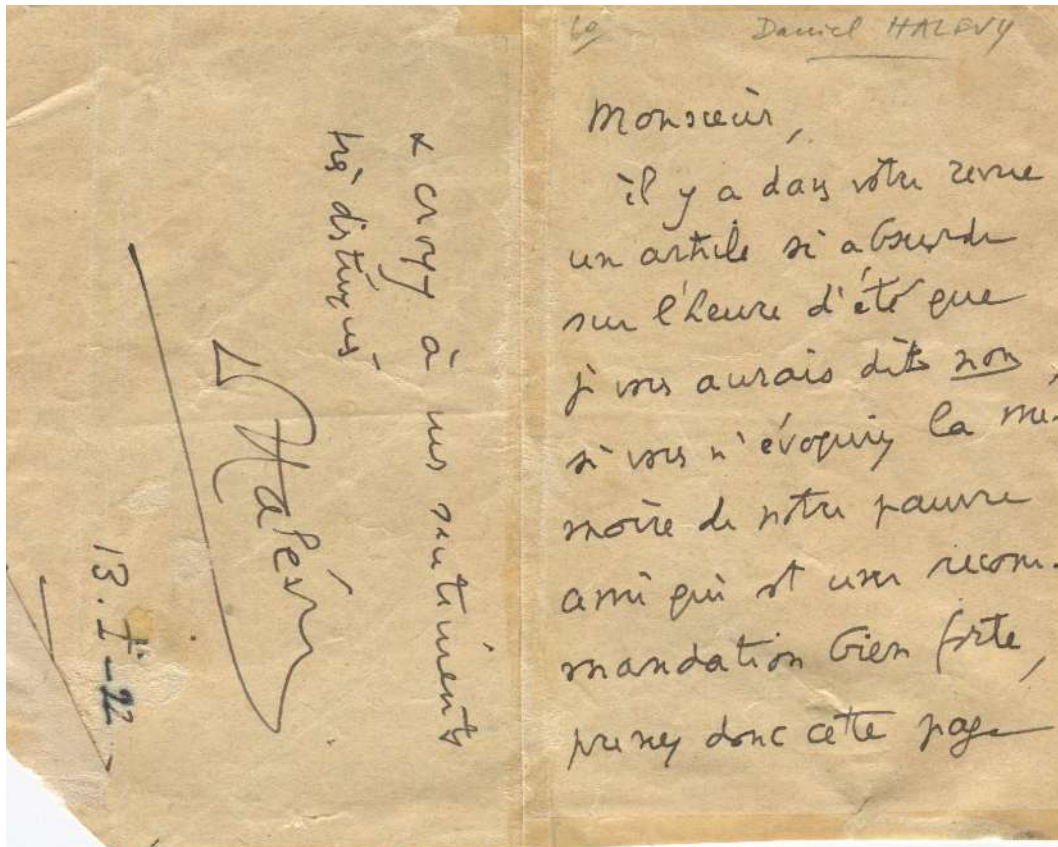 60
Daniel HALEVY
Monsieur,
il y a dans votre revue
un article si absurde
sur l'heure d'été que
je vous aurais dit non,
si vous n'évoquiez la mé-
moire de notre pauvre
ami qui est une recom-
mandation bien forte,
prenez donc cette page
& croyez à mes sentiments
très distingués
D Halévy
13.I-22